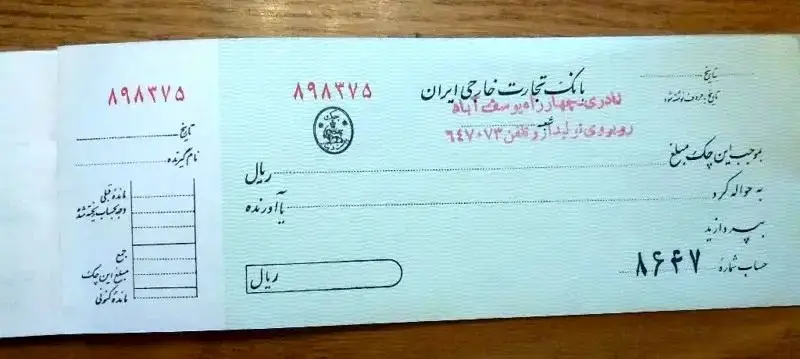 ۸۹۸۳۷۵
تاریخ
نام گیرنده
مانده قبلی
وجه بحساب ریخته شده
جمع
مبلغ این چک
مانده کنونی
۸۹۸۳۷۵
بانک تجارت خارجی ایران
نادری-چهارراه یوسف آباد
شعبه
روبروی نو تلفن ۶۴۷۰۷۳
تاریخ
تاریخ بحروف نوشته شود
بموجب این چک مبلغ
ریال
به حواله کرد
یا آورنده
بپردازید
حساب شماره ۸۶۴۷
ریال